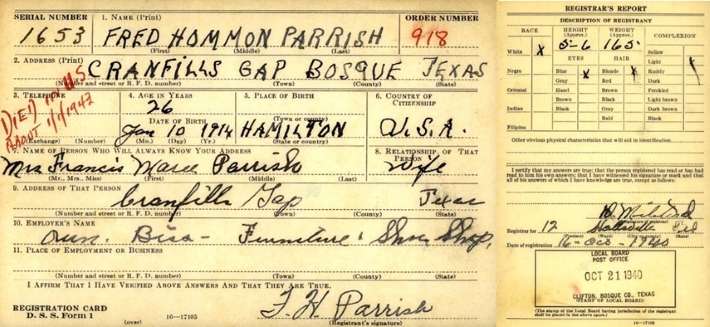 SERIAL NUMBER
1. NAME (Print)
ORDER NUMBER
1653
FRED HOMMON PARRISH
918
(First) (Middle) (Last)
2. ADDRESS (Print)
CRANFILLS GAP BOSQUE TEXAS
(Number and street or R. F. D. number) (Town) (County) (State)
3. TELEPHONE
4. AGE IN YEARS
5. PLACE OF BIRTH
6. COUNTRY OF CITIZENSHIP
26
DIED IN US
ABOUT 1/1/1942
DATE OF BIRTH
(Town or county)
Jan 10 1914 HAMILTON
U.S.A.
(Exchange) (Number) (Mo.) (Day) (Yr.) (State or country)
7. NAME OF PERSON WHO WILL ALWAYS KNOW YOUR ADDRESS
8. RELATIONSHIP OF THAT PERSON
Mrs Francis Parrish
Wife
(Mr., Mrs., Miss) (First) (Middle) (Last)
9. ADDRESS OF THAT PERSON
Cranfills Gap Texas
(Number and street or R. F. D. number) (Town) (County) (State)
10. EMPLOYER'S NAME
Furniture & Shoe Shop
11. PLACE OF EMPLOYMENT OR BUSINESS
(Number and street or R. F. D. number) (Town) (County) (State)
I AFFIRM THAT I HAVE VERIFIED ABOVE ANSWERS AND THAT THEY ARE TRUE.
F. H. Parrish
REGISTRATION CARD
D. S. S. Form 1
(over)
16—17105
(Registrant's signature)
REGISTRAR'S REPORT
DESCRIPTION OF REGISTRANT
RACE
HEIGHT (Approx.)
WEIGHT (Approx.)
COMPLEXION
White X
5-6
165
Sallow
Light
EYES
HAIR
Ruddy
Negro
Blue X
Blonde X
Dark
Gray
Red
Freckled
Oriental
Hazel
Brown
Light brown
Brown
Black
Dark brown
Indian
Black
Gray
Black
Bald
Filipino
Other obvious physical characteristics that will aid in identification
I certify that my answers are true; that the person registered has read or has had
read to him his own answers; that I have witnessed his signature or mark and that
all of his answers of which I have knowledge are true, except as follows:
Registrar for 12
Date of registration 16-Oct-1940
LOCAL BOARD
POST OFFICE
OCT 21 1940
CLIFTON, BOSQUE CO., TEXAS
(STAMP OF LOCAL BOARD)
(The stamp of the Local Board having jurisdiction of the registrant
shall be placed in the above space.)